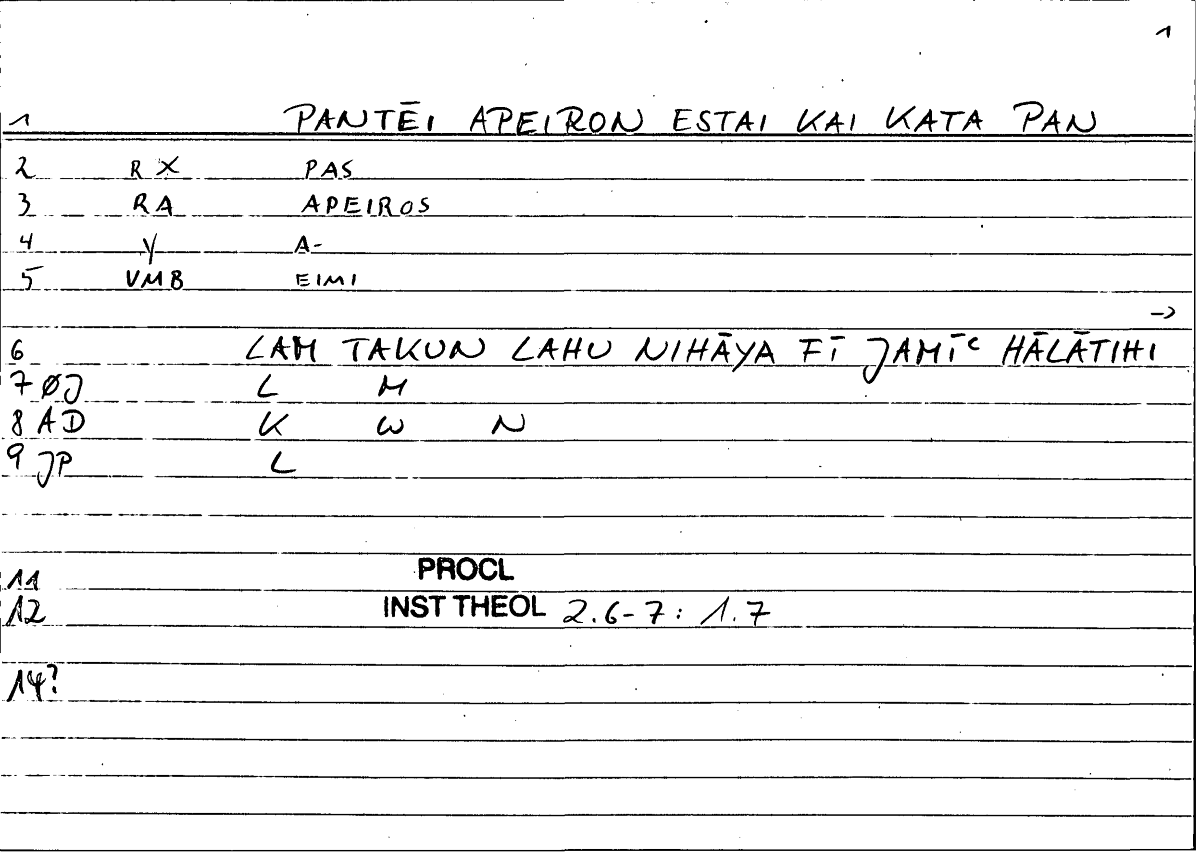 1
1 PANTĒI APEIRON ESTAI KAI KATA PAN
2 RX PAS
3 RA APEIROS
4 Y A-
5 VMB EIMI
->
6 LAM TAKUN LAHU NIHĀYA FĪ JAMĪᶜ HĀLĀTIHI
7 ØJ L M
8 AD K W N
9 JP L
11 PROCL
12 INST THEOL 2.6-7: 1.7
14?